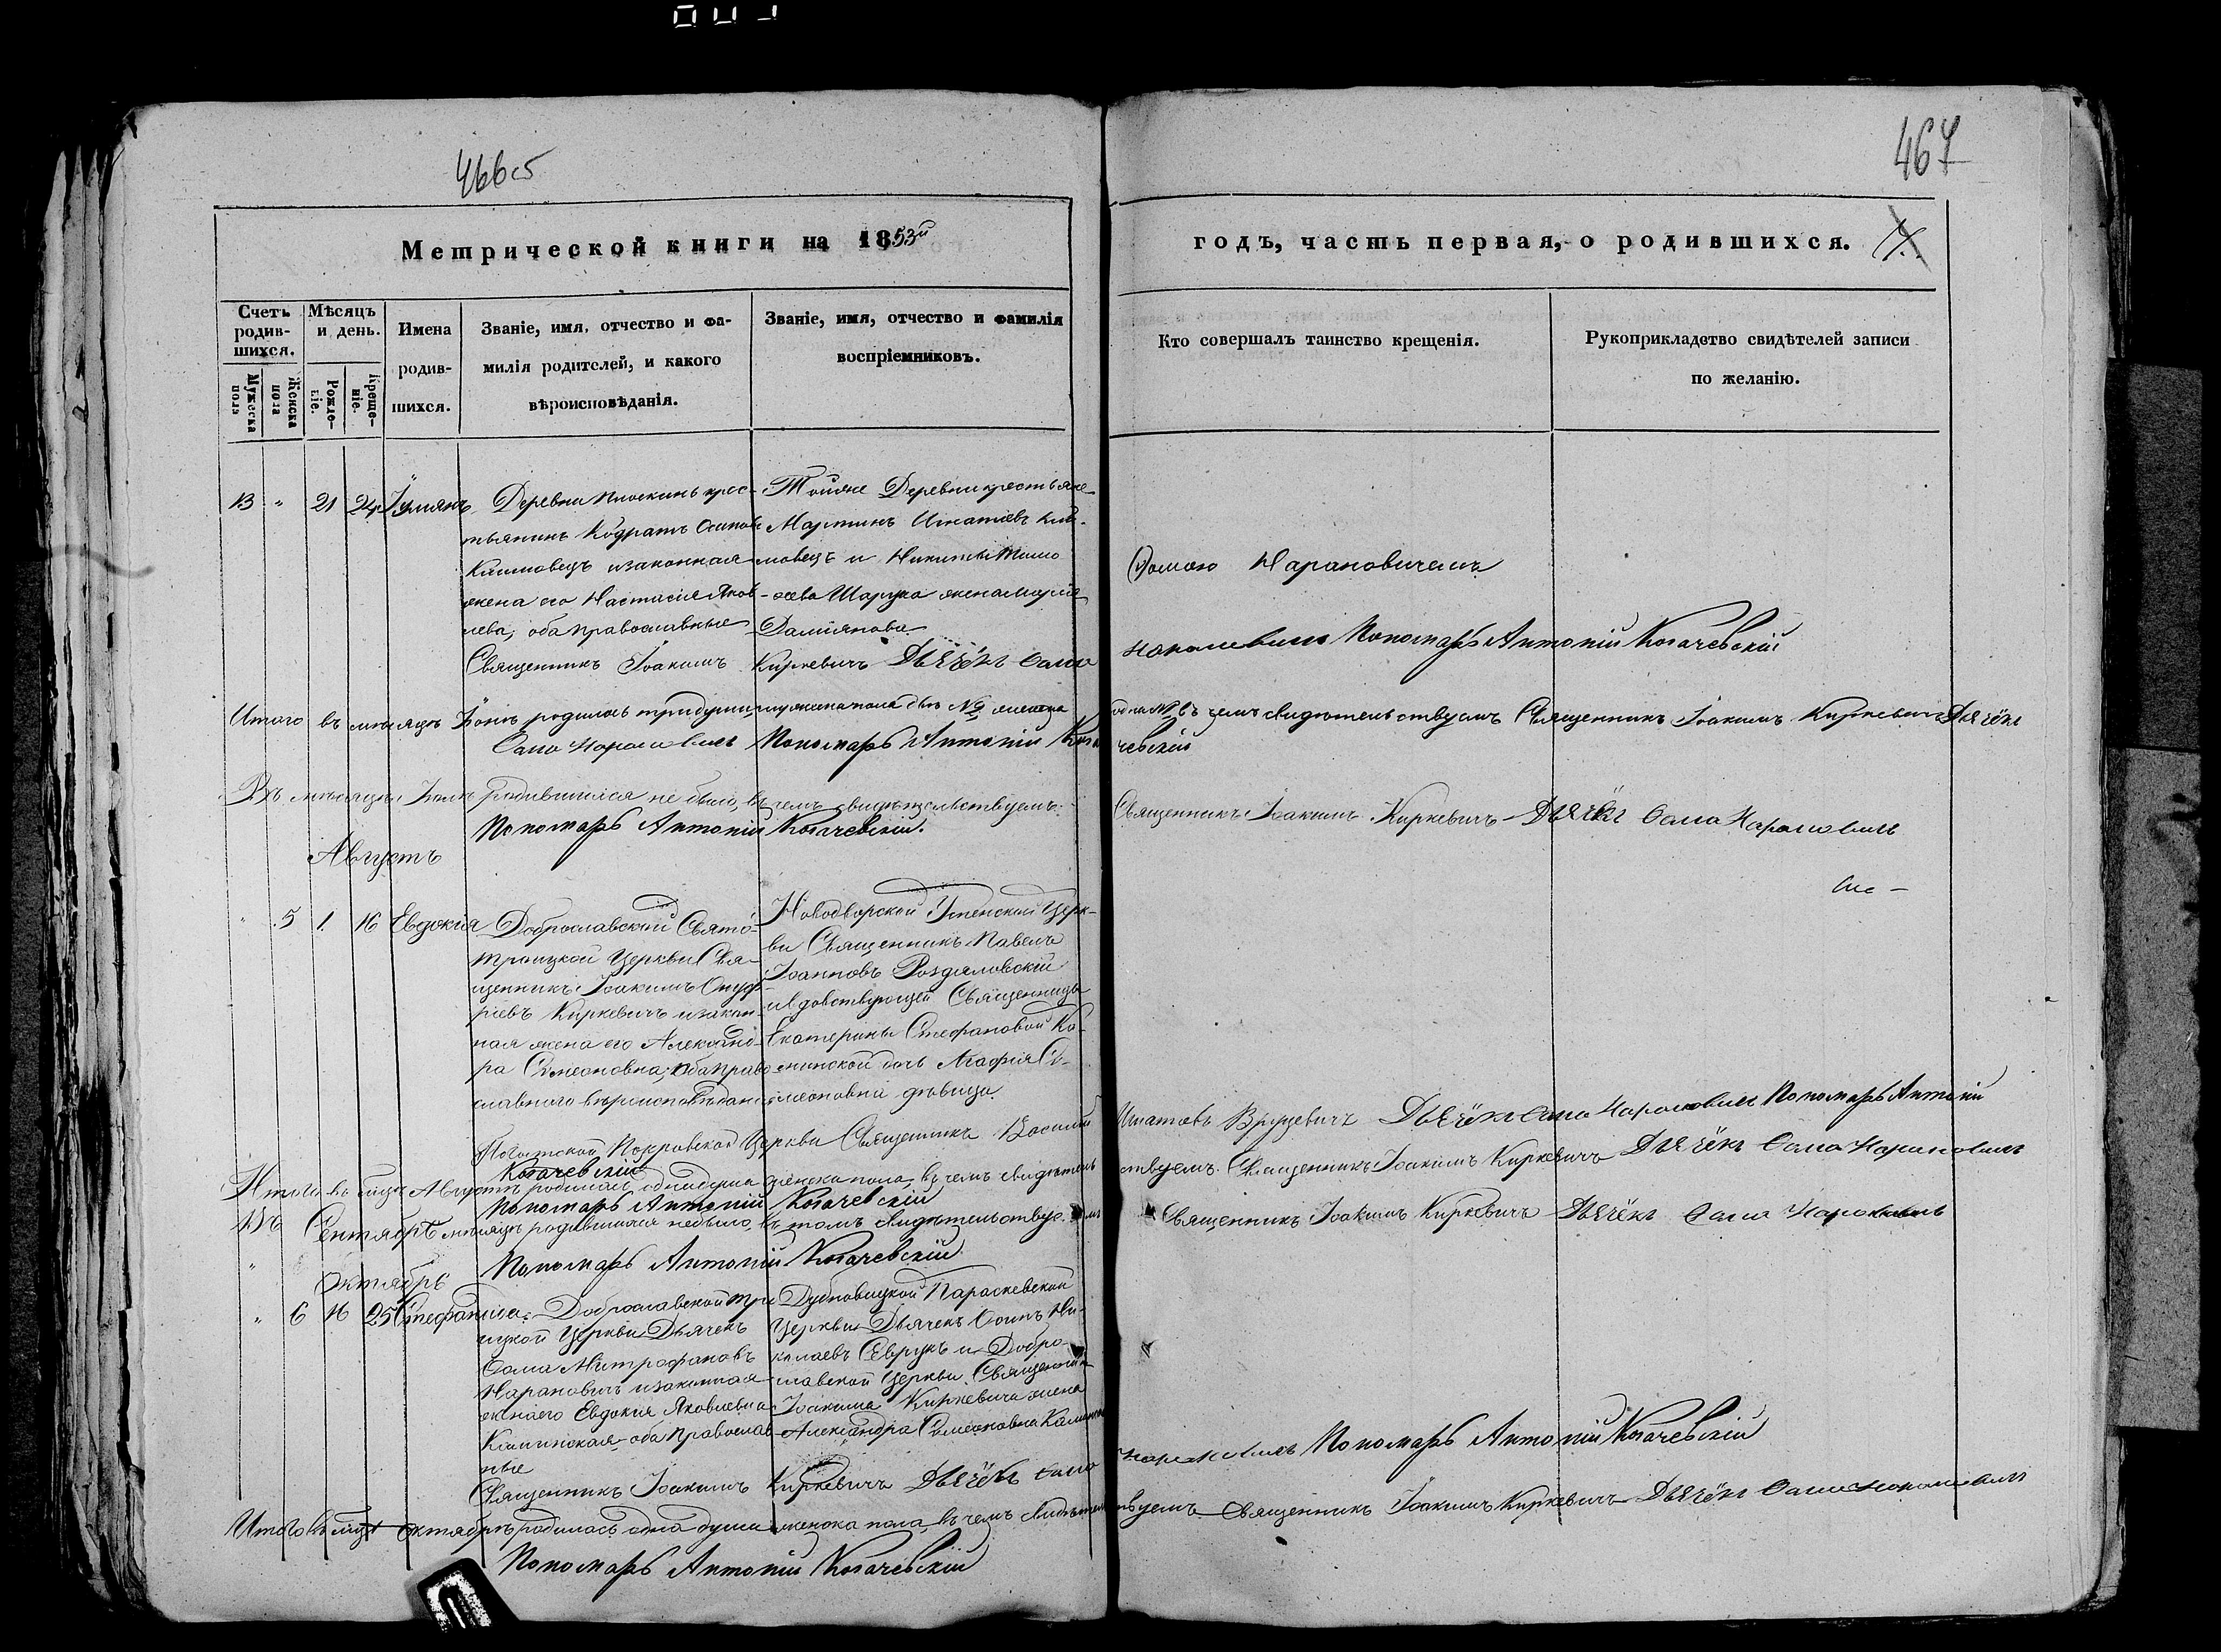 466об
467
Метрической книги на 1853й
годъ, часть первая, о родившихся.
Счетъ родив-шихся.
Мѣсяцъ и день.
Имена родив-шихся.
Званіе, имя, отчество и фа-
милія родителей, и какого
вѣроисповѣданія.
Званіе, имя, отчество и фамилія
воспріемниковъ.
Кто совершалъ таинство крещенія.
Рукоприкладство свидѣтелей записи
по желанію.
Мужеска пола
Женска пола
Рожде-ніе.
Креще-ніе.
13 " 21 24
Деревни крес-
тьянинъ Кодратъ Осиповъ
Климовецъ и законная
жена его Настасія Яков-
лева, оба православные
Тойже Деревни крестьяне
Мартинъ Игнатіевъ Кли-
мовецъ и Никиты
Шарука жена Марія
Даміянова
Священникъ Іоакимъ Киркевичъ Дьячёкъ Ѳома
Ѳомою Нарановичемъ
Нарановичъ Пономарь Антоній Когачевскій
Итого въ мѣсяцѣ Іюнѣ родилось три души, мужеска пола двѣ № женска
одна въ чемъ свидѣтельствуемъ Священникъ Іоакимъ Киркевичъ Дьячёкъ
Ѳома Нарановичъ Пономарь Антоній Когачевскій
Въ мѣсяцѣ Іюлѣ родившихся не было, въ чемъ свидѣтельствуемъ:
Священникъ Іоакимъ Киркевичъ Дьячёкъ Ѳома Нарановичъ
Пономарь Антоній Когачевскій.
Августъ
" 5 1. 16 Евдокія
Доброславской Свято-
троицкой Церкви Свя-
щенникъ Іоакимъ Онуф-
ріевъ Киркевичъ и закон-
ная жена его Александ-
ра Симеоновна; оба право-
славнаго вѣроисповѣданія
Новодворской Успенской Церк-
ви Священникъ Павелъ
Іоанновъ Роздяловскій
и вдовствующей Священницы
Екатерины Стефановой Ка-
минской дочь Агафія Си-
меоновна дѣвица.
Погостской Покровской Церкви Священникъ Василій
Игнатовъ Врублевичъ Дьячёкъ Ѳома Нарановичъ Пономарь Антоній
Когачевскій
Итого въ мцѣ Августѣ родилась одна душа женска пола, въ чемъ свидѣтель
ствуемъ. Священникъ Іоакимъ Киркевичъ Дьячёкъ Ѳома Нарановичъ
Пономарь Антоній Когачевскій
Въ Сентябрѣ мѣсяцѣ родившихся небыло, въ томъ свидѣтельствуемъ
Священникъ Іоакимъ Киркевичъ Дьячёкъ Ѳома Нарановичъ
Пономарь Антоній Когачевскій
Октябрь
" 6 16 25 Стефанида
Доброславской Тро-
ицкой Церкви Дьячекъ
Ѳома Митрофановъ
Нарановичъ и законная
жена его Евдокія Яковлевна
Каминская, оба Православ-
ные
Дубновицкой Параскевской
Церкви Дьячекъ Осипъ Ни-
колаевъ Севрукъ и Добро-
славской Церкви Священника
Іоакима Киркевича жена
Александра Симеоновна
Священникъ Іоакимъ Киркевичъ Дьячёкъ Ѳома
Нарановичъ Пономарь Антоній Когачевскій
Итого въ мцѣ Октябрѣ родилась одна душа женска пола, въ чемъ свидѣтель
ствуемъ Священникъ Іоакимъ Киркевичъ Дьячёкъ Ѳома Нарановичъ
Пономарь Антоній Когачевскій